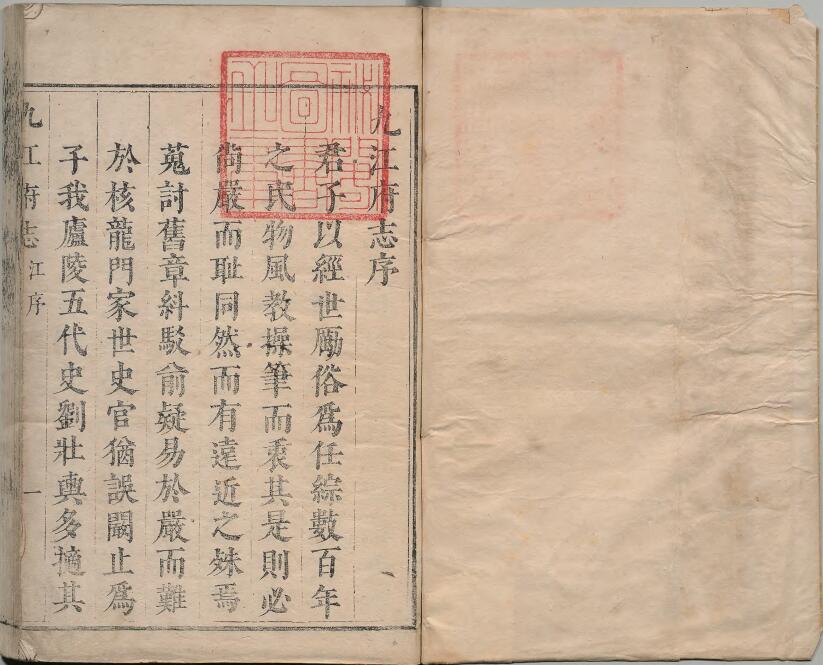 九江府志序
君子以經世勵俗爲任綜數百年
之民物風教操筆而裹其是則必
尚嚴而耻同然而有遠近之殊焉
蒐討舊章糾駁僉疑易於嚴而難
於核龍門家世史官猶誤闞止爲
子我廬陵五代史劉壯輿多摘其
九江府志 江序 一